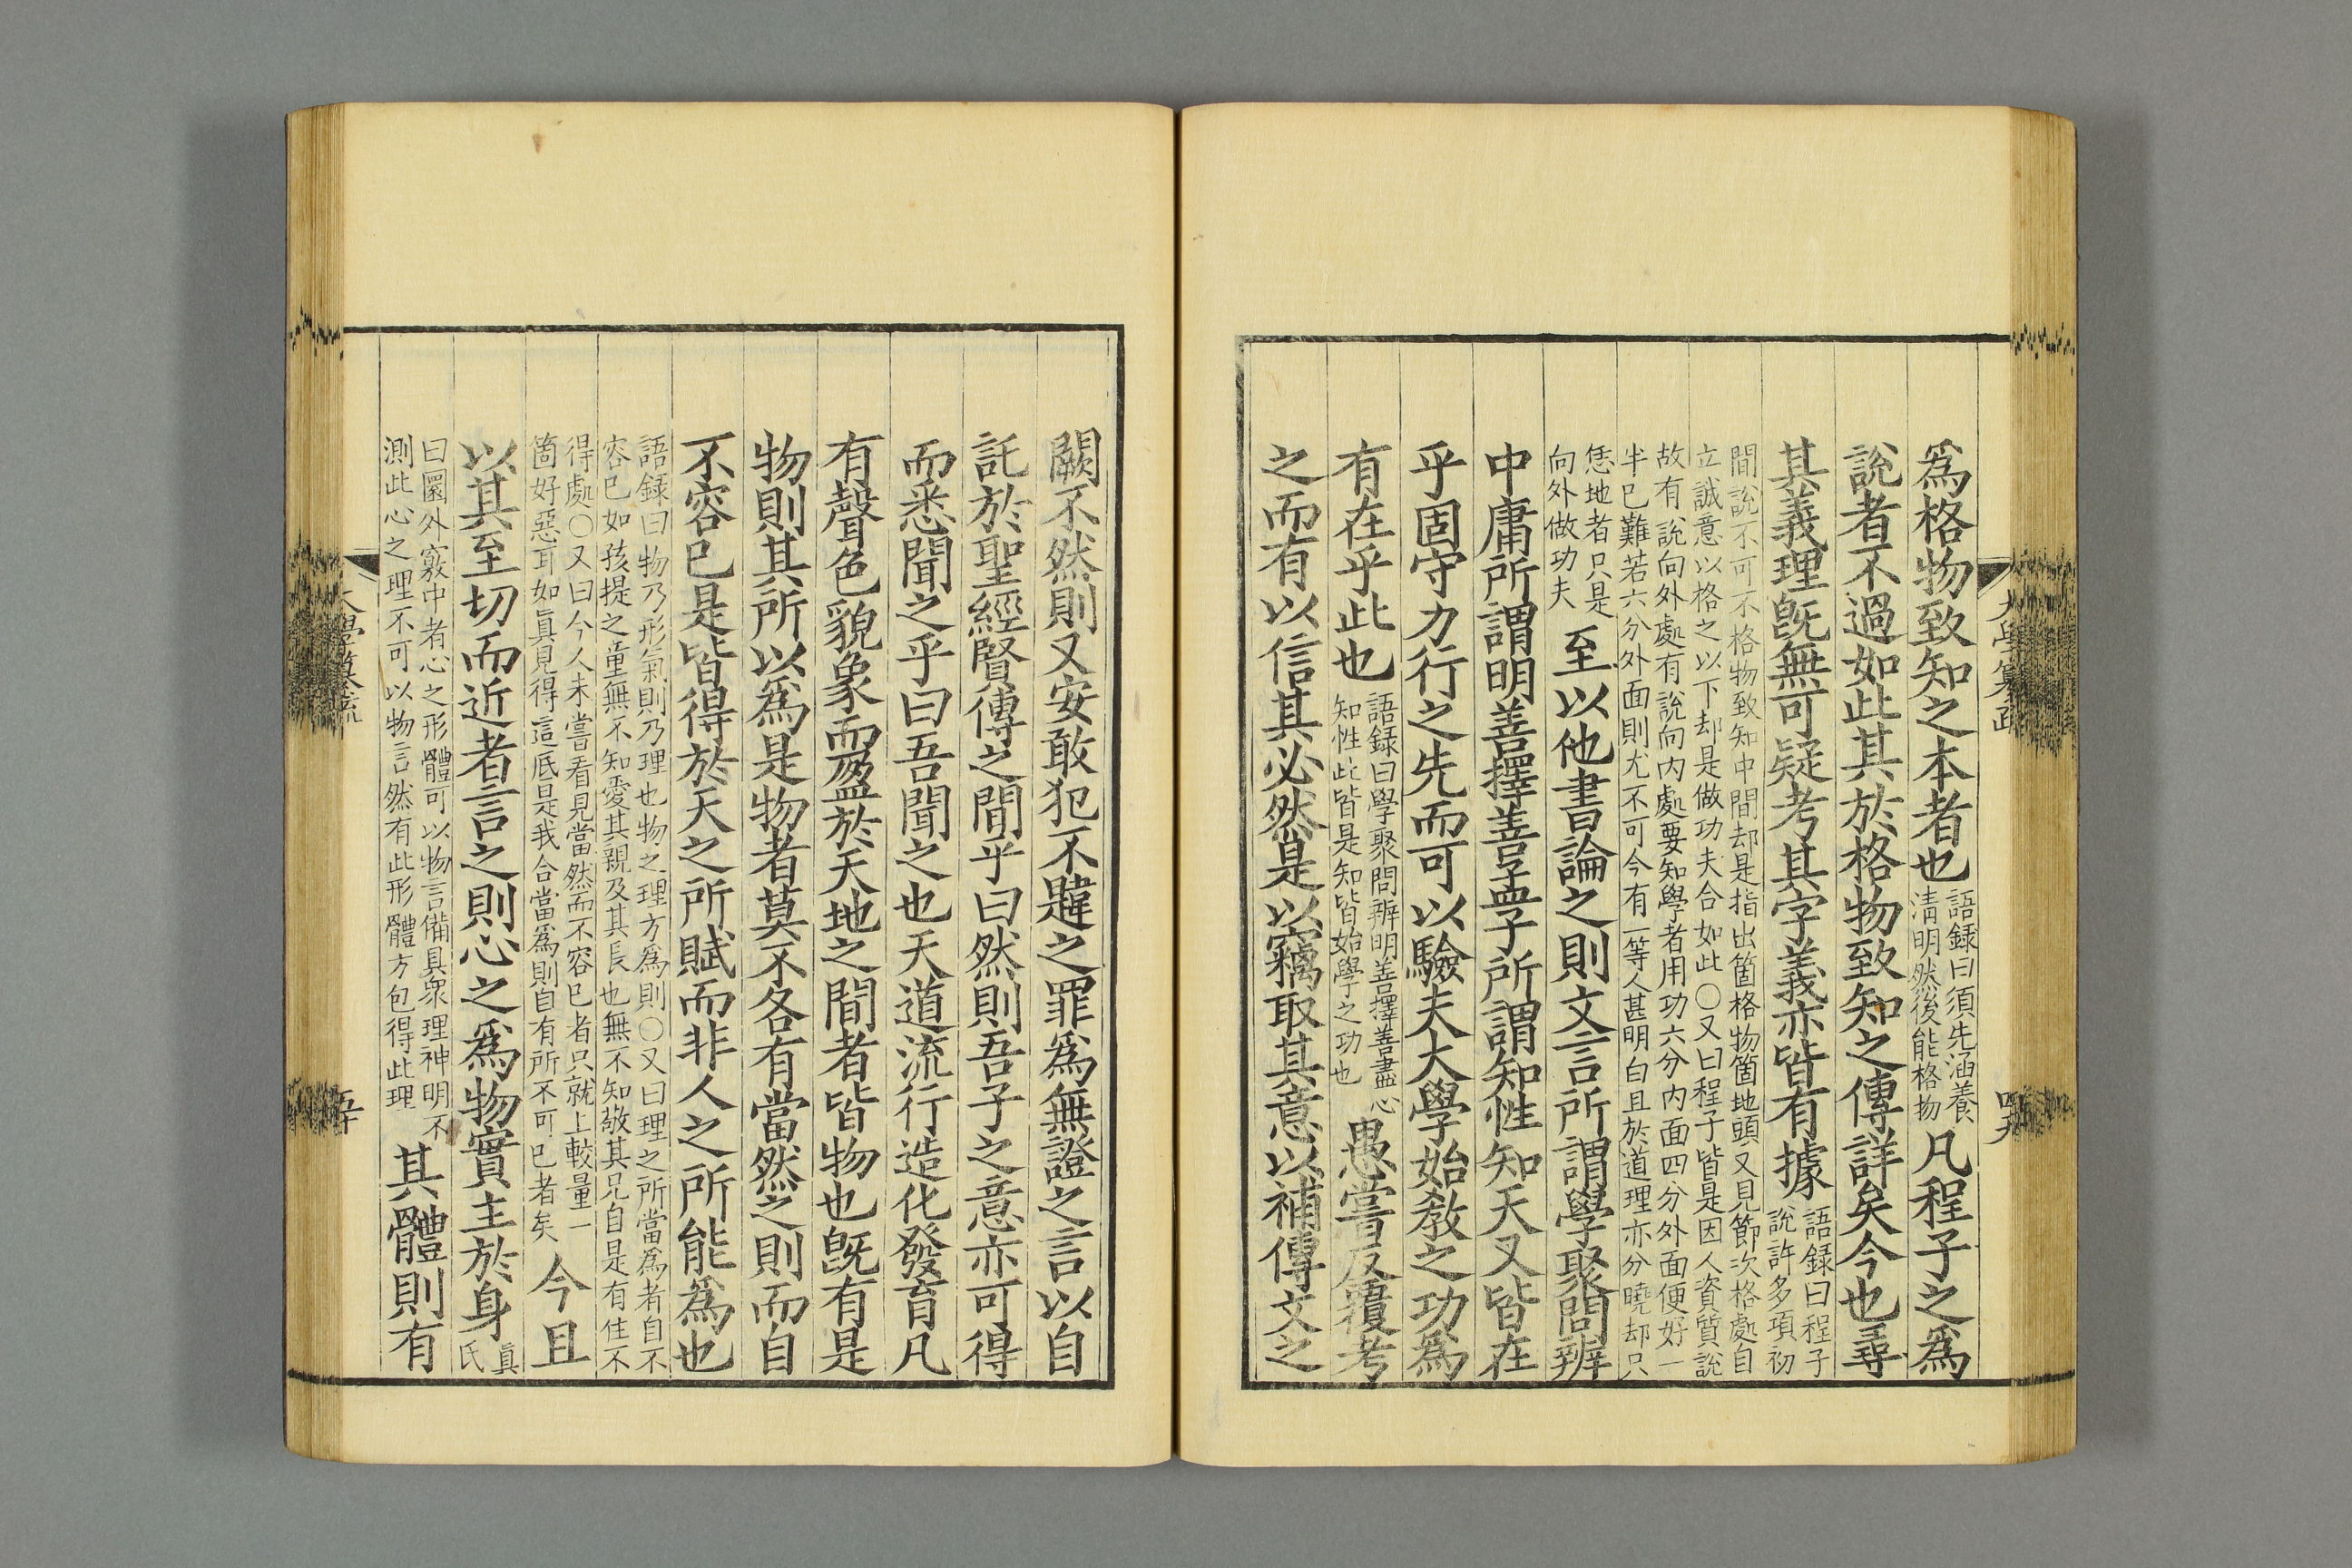 爲格物致知之本者也語録曰須先涵養清明然後能格物凡程子之爲
說者不過如此其於格物致知之傳詳矣今也尋
其義理旣無可疑考其字義亦皆有據語録曰程子說許多項初
間說不可不格物致知中間却是指出箇格物箇地頭又見節次格處自
立誠意以格之以下却是做功夫合如此〇又曰程子皆是因人資質說
故有說向外處有說向内處要知學者用功六分内面四分外面便好一
半已難若六分外面則尤不可今有一等人甚明白且於道理亦分曉却只
恁地者只是向外做功夫至以他書論之則文言所謂學聚問辨
中庸所謂明善擇善孟子所謂知性知天又皆在
乎固守力行之先而可以驗夫大學始敎之功爲
有在乎此也語録曰學聚問辨明善擇善盡心知性此皆是知皆始學之功也愚嘗反覆考
之而有以信其必然是以竊取其意以補傳文之
闕不然則又安敢犯不韙之罪爲無證之言以自
託於聖經賢傳之間乎曰然則吾子之意亦可得
而悉聞之乎曰吾聞之也天道流行造化發育凡
有聲色貌象而盈於天地之間者皆物也旣有是
物則其所以爲是物者莫不各有當然之則而自
不容已是皆得於天之所賦而非人之所能爲也
語録曰物乃形氣則乃理也物之理方爲則〇又曰理之所當爲者自不
容已如孩提之童無不知愛其親及其長也無不知敬其兄自是有住不
得處〇又曰今人未嘗看見當然而不容已者只就上較量一
箇好惡耳如眞見得這底是我合當爲則自有所不可已者矣今且
以其至切而近者言之則心之爲物實主於身眞氏
曰圓外竅中者心之形體可以物言備具衆理神明不
測此心之理不可以物言然有此形體方包得此理其體則有
大學纂疏
五十